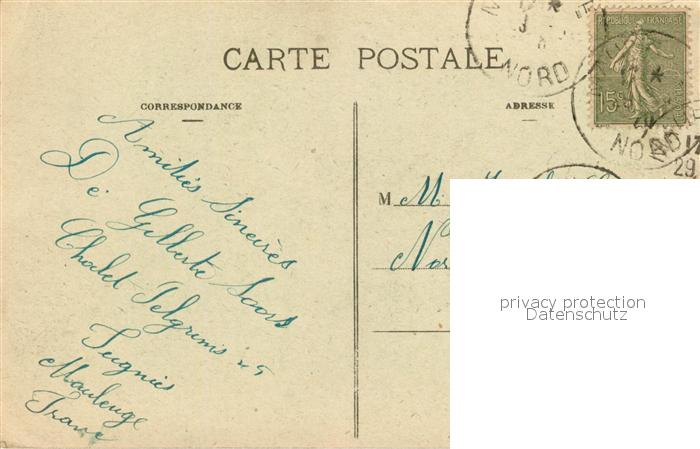 CARTE POSTALE
CORRESPONDANCE
Amitiés Sincères
De Gilberte Soors
Chalet Pelgrims 45
Feignies
Maubeuge
France
ADRESSE
M M.
Nor
REPUBLIQUE FRANÇAISE
15c
NORD
NORD
17
29
privacy protection
Datenschutz